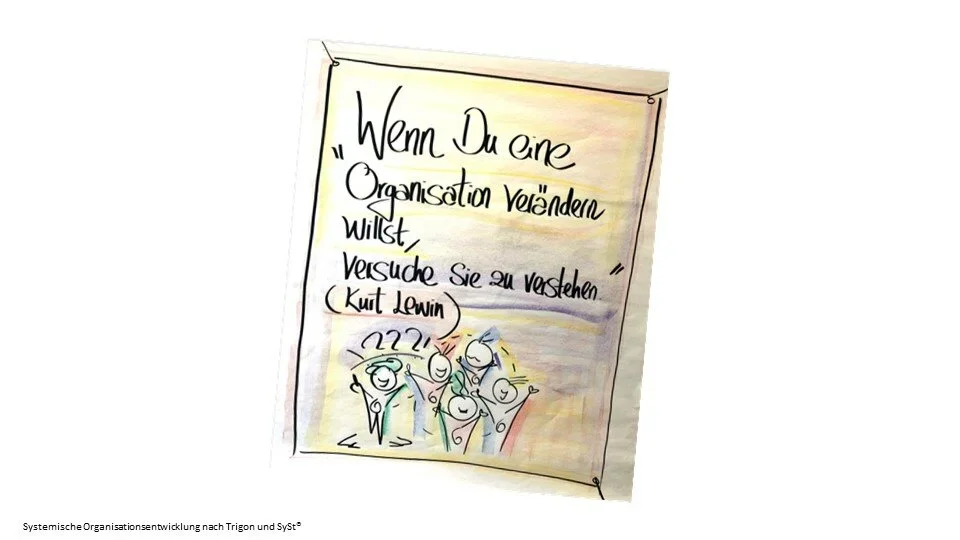 "Wenn Du eine
Organisation verändern
willst,
versuche sie zu verstehen"
(Kurt Lewin)
???
Systemische Organisationsentwicklung nach Trigon und SySt®